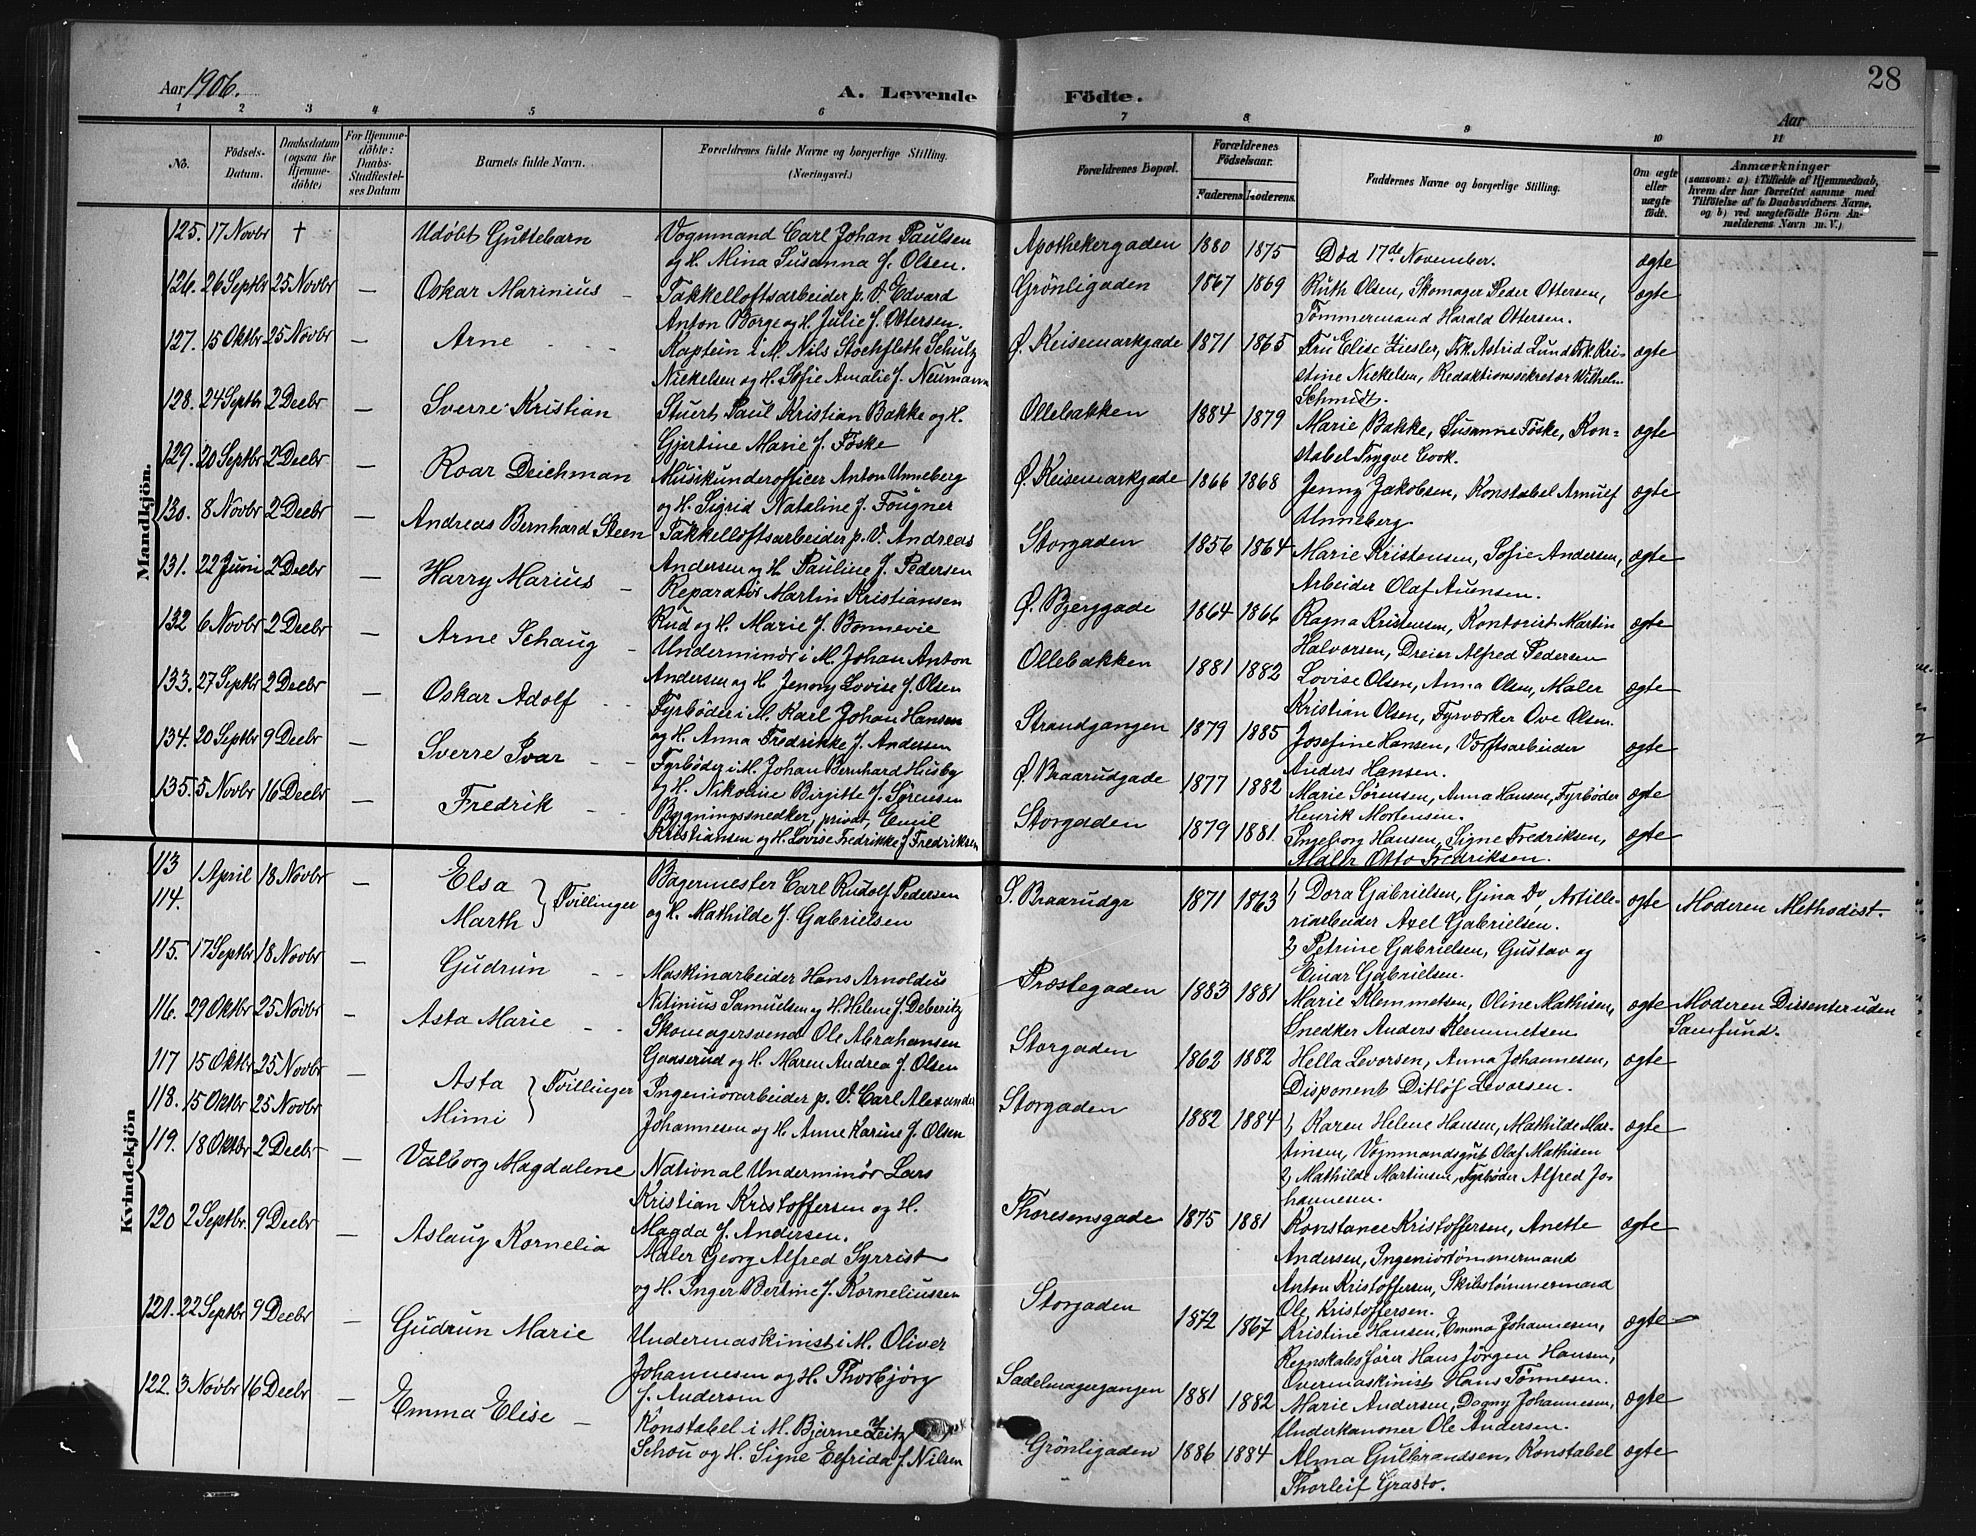 Aar 1906.
A. Levende Födte.
28
Aar
1 2 3 4 5 6 7 8 9 10 11
No.
Födsels-Datum.
Daabsdatum (ogsaa för Hjemme-döbte)
For Hjemme-döbte: Daabs-Stadfæstel-ses Datum
Barnets fulde Navn.
Forældrenes fulde Navne og borgerlige Stilling. (Næringsvei.)
Forældrenes Bopæl.
Forældrenes Födselsaar.
Faderens. Moderens.
Faddernes Navne og borgerlige Stilling.
Om ægte eller uægte födt.
Anmærkninger
(saasom: a) i Tilfælde af Hjemmedaab, hvem der har forrettet samme med Tilföielse af to Daabsvidners Navne, og b) ved uægtefödte Börn Anmelderens Navn m. V.)
Mandkjön.
125. 17 Novbr † Udöbt Guttebarn Vognmand Carl Johan Paulsen og H. Mina Susanna f. Olsen. Apothekergaden 1880 1875 Död 17de November. ægte
126. 26 Septbr 25 Novbr — Oskar Marinius Takkelloftsarbeider p. V. Edvard Anton Borge og H. Julie f. Ottersen. Grönligaden 1867 1869 Ruth Olsen, Skomager Peder Ottersen, Tömmermand Harald Ottersen. ægte
127. 15 Oktbr 25 Novbr — Arne Kaptein i M. Nils Stochfleth Schultz Nickelsen og H. Sofie Amalie f. Neumann Ö. Keisemarkgade 1871 1865 Fru Elise Ziesler, Frk. Astrid Lund Frk. Kristine Nickelsen, Redaktionssekretær Wilhelm Schmidt. ægte
128. 24 Septbr 2 Decbr — Sverre Kristian Stuert Paul Kristian Bakke og H. Gjertine Marie f. Föske Ollebakken 1884 1879 Marie Bakke, Susanne Föske, Konstabel Trygve Cook. ægte
129. 20 Septbr 2 Decbr — Roar Deichman Musikunderofficer Anton Unneberg og H. Sigrid Nataline f. Fougner Ö. Keisemarkgade 1866 1868 Jenny Jakobsen, Konstabel Arnulf Unneberg ægte
130. 8 Novbr 2 Decbr — Andreas Bernhard Steen Takkelloftsarbeider p. V. Andreas Andersen og H. Pauline f. Pedersen Storgaden 1856 1864 Marie Kristensen, Sofie Andersen, Arbeider Olaf Auensen. ægte
131. 22 Juni 2 Decbr — Harry Marius Reparatör Martin Kristiansen Rud og H. Marie f. Bonnevie Ö. Bjerggade 1864 1866 Ragna Kristensen, Kontorist Martin Halvorsen, Dreier Alfred Pedersen ægte
132 6 Novbr 2 Decbr — Arne Schaug Underminör i M. Johan Anton Andersen og H. Jenny Lovise f. Olsen Ollebakken 1881 1882 Lovise Olsen, Anna Olsen, Maler Kristian Olsen, Fyrværker Ove Olsen. ægte
133. 27 Septbr 2 Decbr — Oskar Adolf Fyrböder i M. Karl Johan Hansen og H. Anna Fredrikke f. Andersen Strandgangen 1879 1885 Josefine Hansen, Værftsarbeider Anders Hansen. ægte
134. 20 Septbr 9 Decbr — Sverre Ivar Fyrböder i M. Johan Bernhard Husby og H. Nikoline Birgitte f. Sörensen Ö. Braarudgade 1877 1882 Marie Sörensen, Anna Hansen, Fyrböder Henrik Mortensen. ægte
135. 5 Novbr 16 Decbr — Fredrik Bygningssnedker, privat, Emil Kristiansen og H. Lovise Fredrikke f. Fredriksen Storgaden 1879 1881. Ingeborg Hansen, Signe Fredriksen, Maler Otto Fredriksen. ægte
Kvindekjön
113 1 April 18 Novbr — Elsa
114. Marth } Tvillinger Bagermester Carl Rudolf Pedersen og H. Mathilde f. Gabrielsen S. Braarudgr 1871 1863 1) Dora Gabrielsen, Gina Do, Artilleriarbeider Axel Gabrielsen. 2) Petrine Gabrielsen, Gustav og Einar Gabrielsen. ægte Moderen Methodist.
115. 17 Septbr 18 Novbr — Gudrun Maskinarbeider Hans Arnoldus Nitinius Samuelsen og H. Helene f. Deberitz Præstegaden 1883 1881 Marie Klemmetsen, Oline Mathisen, Snedker Anders Klemmetsen ægte Moderen Dissenter uden Samfund.
116. 29 Oktbr 25 Novbr — Asta Marie Skomagersvend Ole Abrahansen Gaaserud og H. Maren Andrea f. Olsen Storgaden 1862 1882 Hella Levorsen, Anna Johannesen, Disponent Ditlöf Levorsen. ægte
117 15 Oktbr 25 Novbr — Asta
118. 15 Oktbr 25 Novbr Mimi } Tvillinger Ingeniörarbeider p. V. Carl Alexander Johannesen og H. Anne Karine f. Olsen Storgaden 1882 1884 1) Karen Helene Hansen, Mathilde Martinsen, Vognmandsgut Olaf Mathisen 2) Mathilde Martinsen, Fyrböder Alfred Johannesen. ægte
119. 18 Oktbr 2 Decbr — Valborg Magdalene National Underminör Lars Kristian Kristoffersen og H. Magda f. Andersen. Thoresensgade 1875 1881 Konstance Kristoffersen, Anette Andersen, Ingeniörtömmermand Anton Kristoffersen, Skibstömmermand Ole Kristoffersen. ægte
120 2 Septbr. 9 Decbr — Aslaug Kornelia Maler Georg Alfred Syrrist og H. Inger Bertine f. Korneliussen Storgaden 1872 1867 Kristine Hansen, Emma Johannesen, Regnskabsförer Hans Jörgen Hansen, Overmaskinist Hans Tönnesen. ægte
121. 22 Septbr 9 Decbr — Gudrun Marie Undermaskinist i M. Oliver Johannesen og H. Thorbjörg f. Andersen Sadelmagergangen 1881 1882 Marie Andersen, Dagny Johannesen, Underkanoner Ole Andersen. ægte
122. 3 Novbr 16 Decbr — Emma Elise Konstabel i M. Bjarne Zeitz Schou og H. Signe Elfrida f. Nilsen Grönligaden 1886 1884 Alma Gulbrandsen, Konstabel Thorleif Grasto. ægte